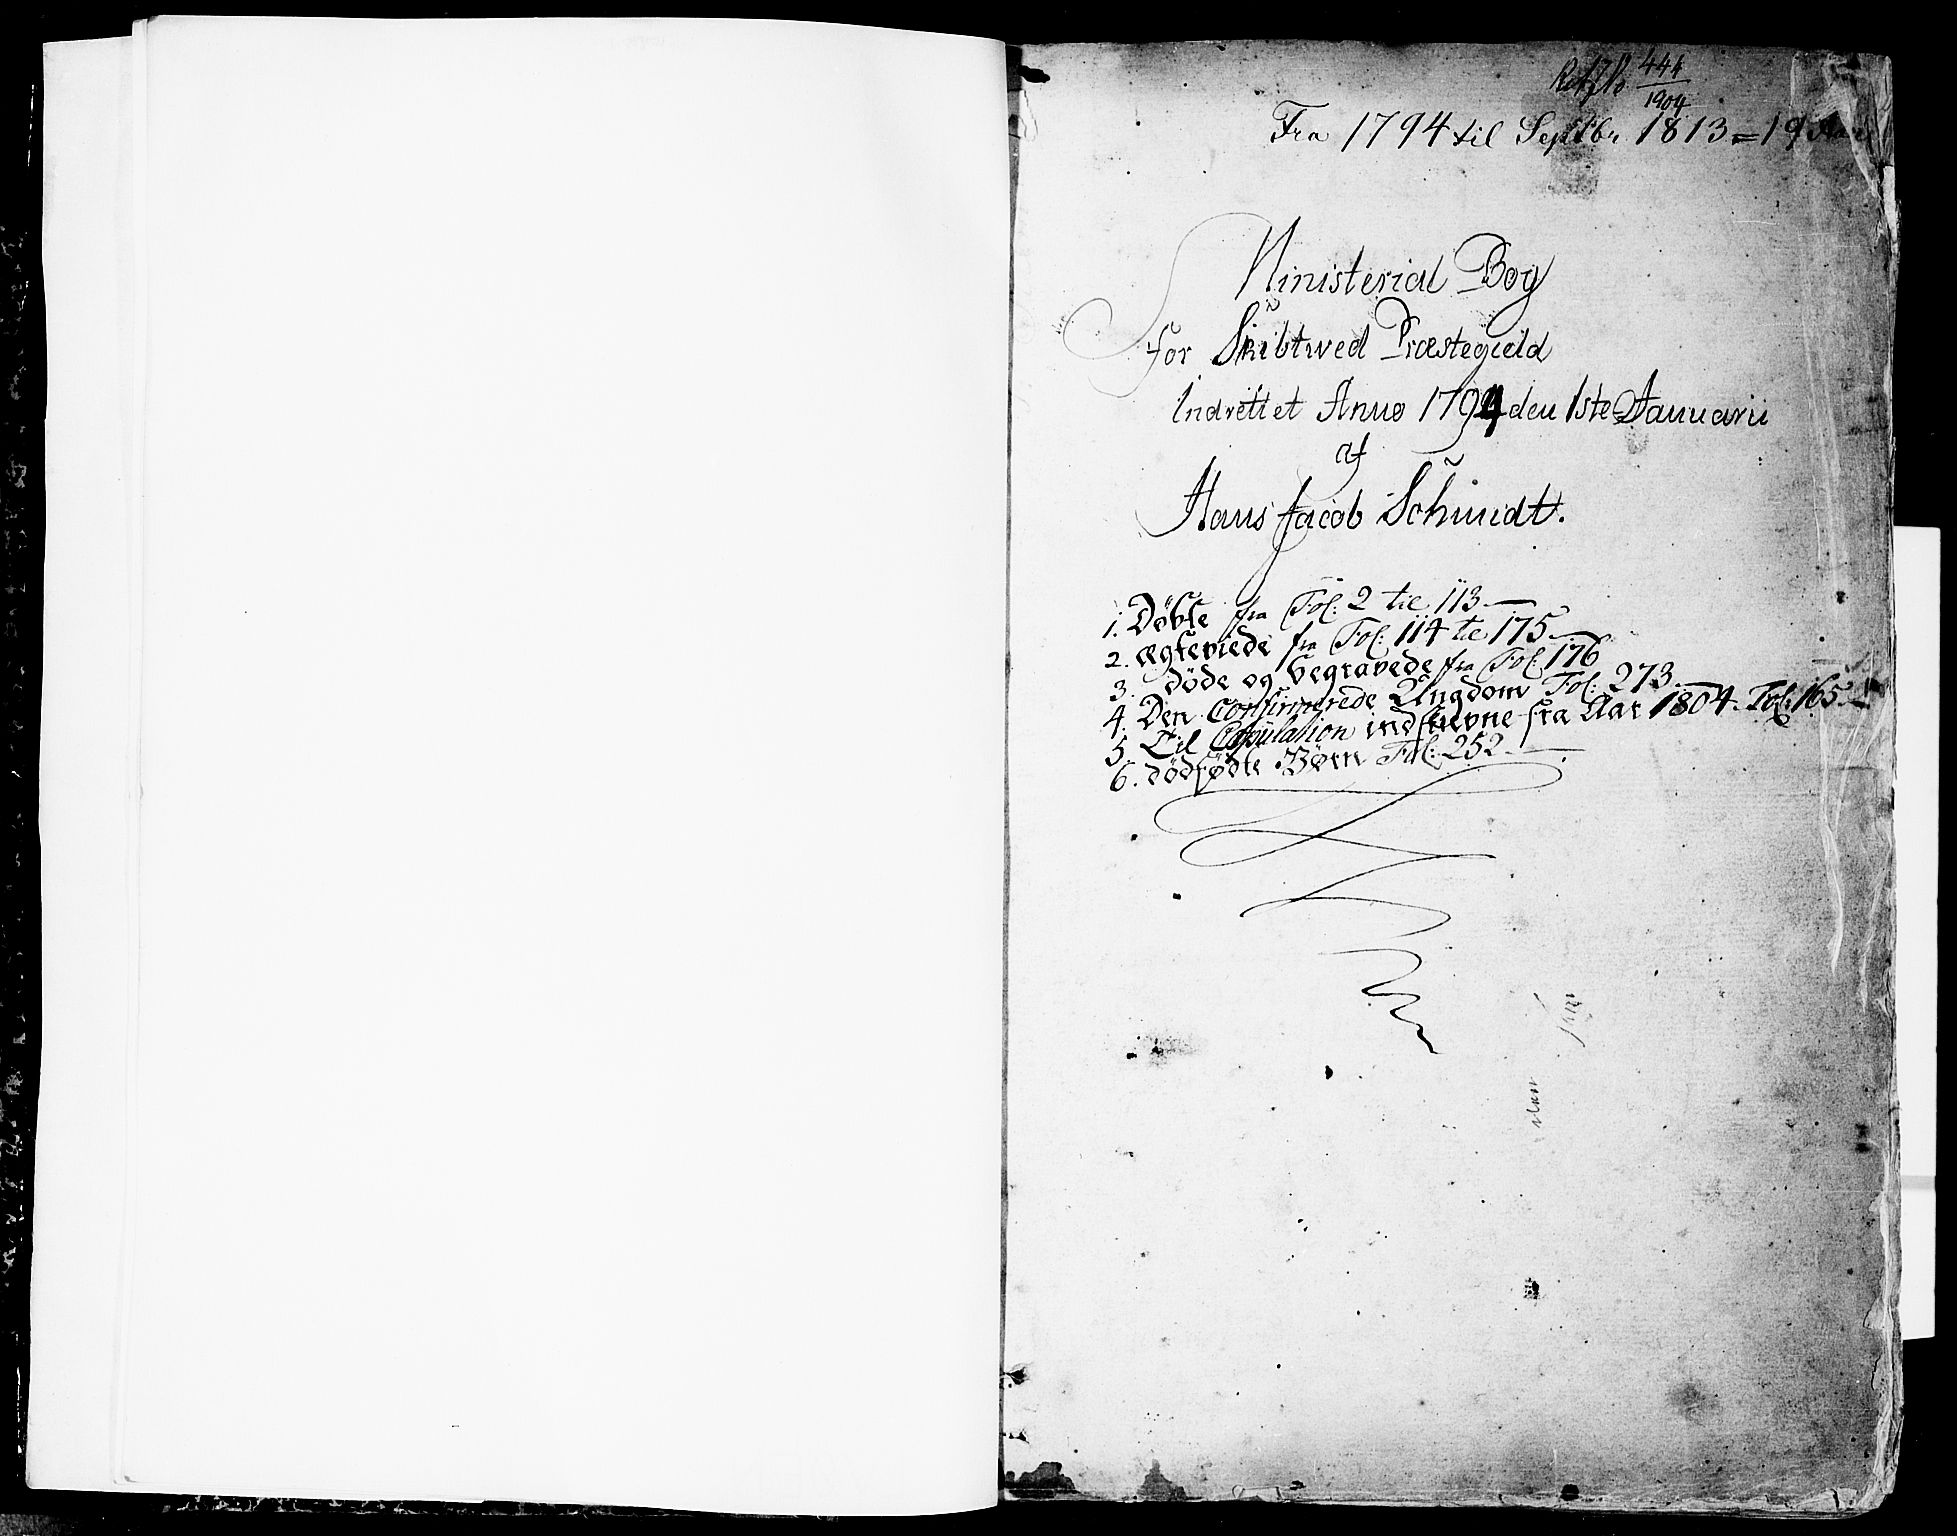 444
1904
Fra 1794 til Septbr. 1813 = 19 Aar
Ministerial Bog
for Skibtwed Præstegield
Indrettet Anno 1794 den 1ste Januarii
af
Hans Jacob Schmidt.
1. Døbte fra Fol: 2 til 113
2. ægteviede fra Fol: 114 til 175
3. døde og begravede fra Fol: 176
4. Den Confirmerede Ungdom Fol: 273
5. Til Copulation indskrevne fra Aar 1804. Fol: 165
6. dødfødte Børn Fol: 252